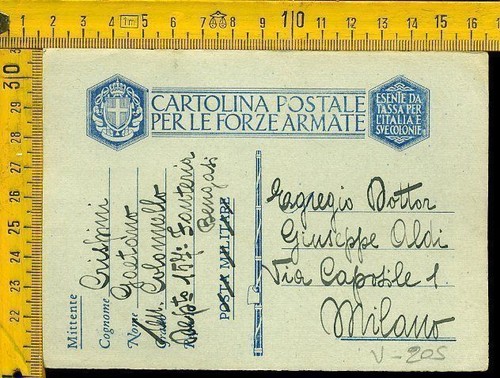 CARTOLINA POSTALE
PER LE FORZE ARMATE
ESENTE DA
TASSA PER
L'ITALIA E
SVE COLONIE
Mittente
Cognome Crispini
Nome Gaetano
Ten. Colonnello
Depto 157° Fanteria
Bengasi
POSTA MILITARE
Egregio Dottor
Giuseppe Aldi
Via Caposile 1.
Milano
V-205
1 2 3 4 5 6 7 8 9 10 11 12 13 14 15 16
1m
30 29 28 27 26 25 24 23 22